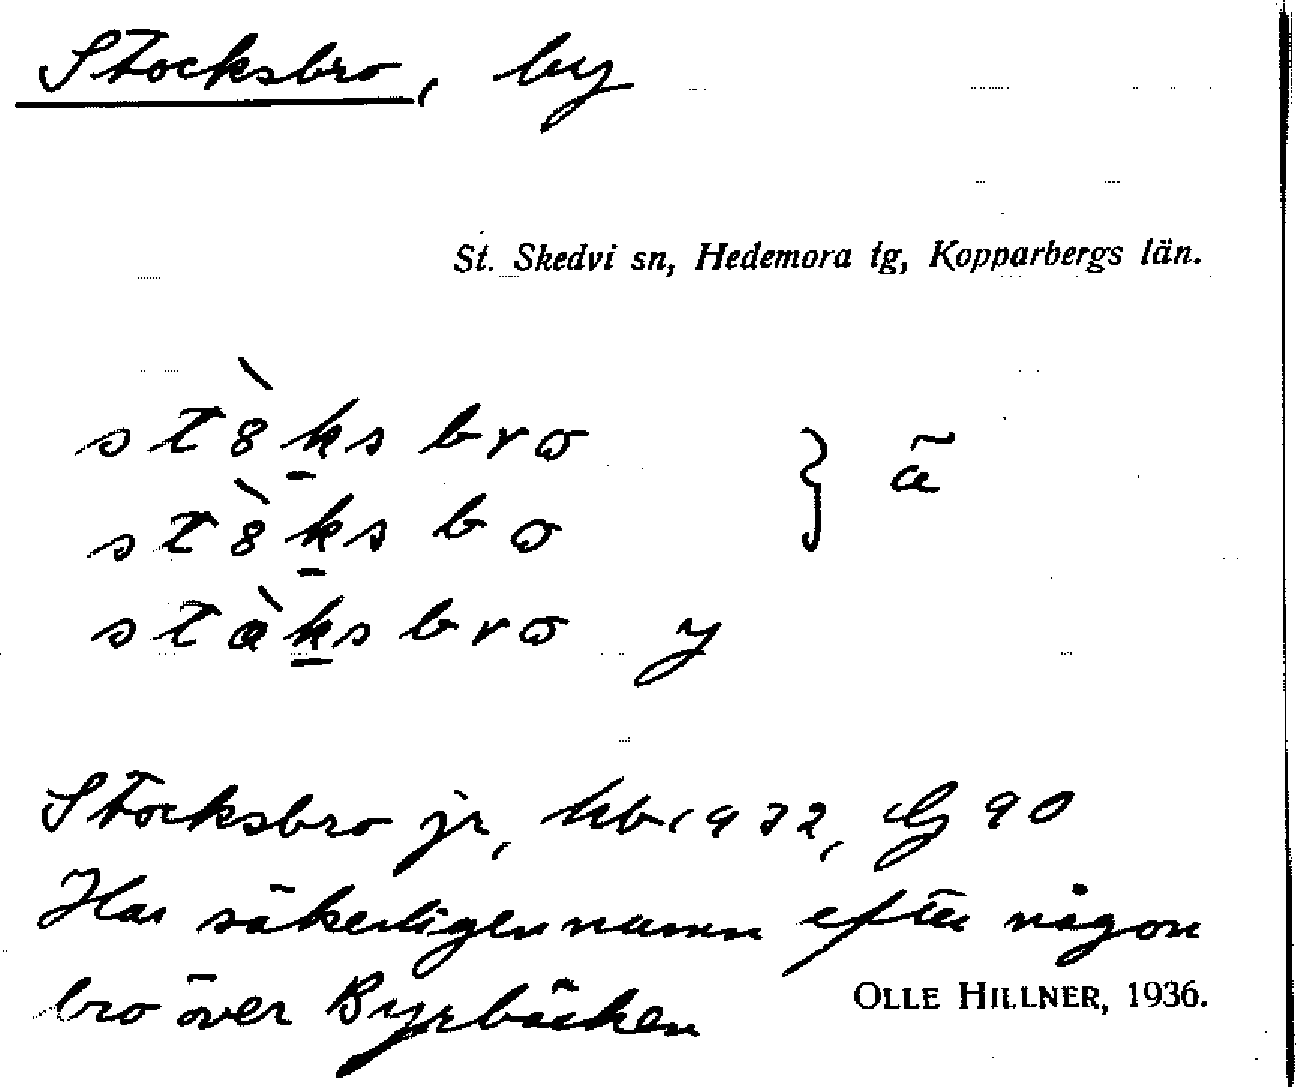 Stocksbro, by
St. Skedvi sn, Hedemora tg, Kopparbergs län.
st8̀ks bro
st8̀ks bo } ä
stàks bro y
Stocksbro jr, Ab 1932, Bg 90
Har säkerligen namn efter någon
bro över Byrbäcken
OLLE HILLNER, 1936.